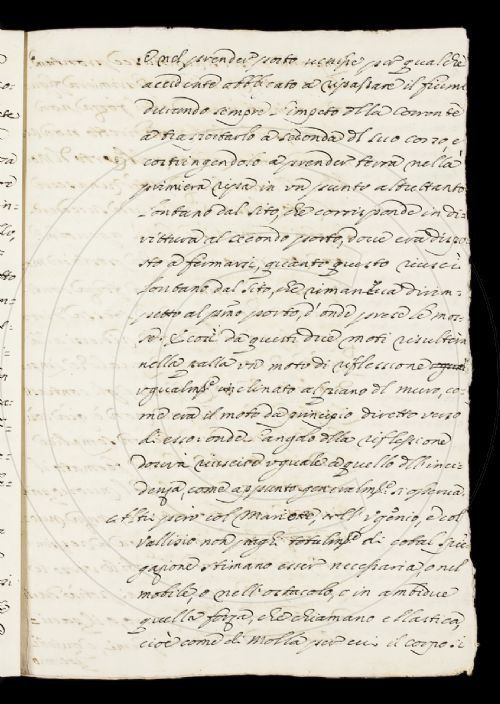 e nel prender porto venisse per qualche
accidente obbligato a ripassare il fiume
durando sempre l'impeto della corrente
a trasportarlo a seconda del suo corso, e
costringendolo a prender terra nella
primiera ripa in un punto altrettanto
lontano dal sito, che corrisponde in di-
rittura al secondo porto, dove era dispo-
sto a fermarsi, quanto questo riuscì
lontano dal sito, che rimaneva dirim-
petto al pmo porto, d'onde prese le mos-
se. E così da questi due moti risulterà
nella palla un moto di riflessione
ugualmte inclinato al piano del muro, co-
me era il moto da principio diretto verso
di esso: onde l'angolo della riflessione
dovrà riuscire uguale a quello dell'inci-
denza, come appunto generalmte s'osserva.
Altri però col Mariotte, coll'Ugenio, e col
Vallisio non totalmte di cotal
gazione stimano esser necessaria, o nel
mobile, o nell'ostacolo, o in ambidue
quella forza, che chiamano ellastica,
cioè come di Molla per cui il corpo